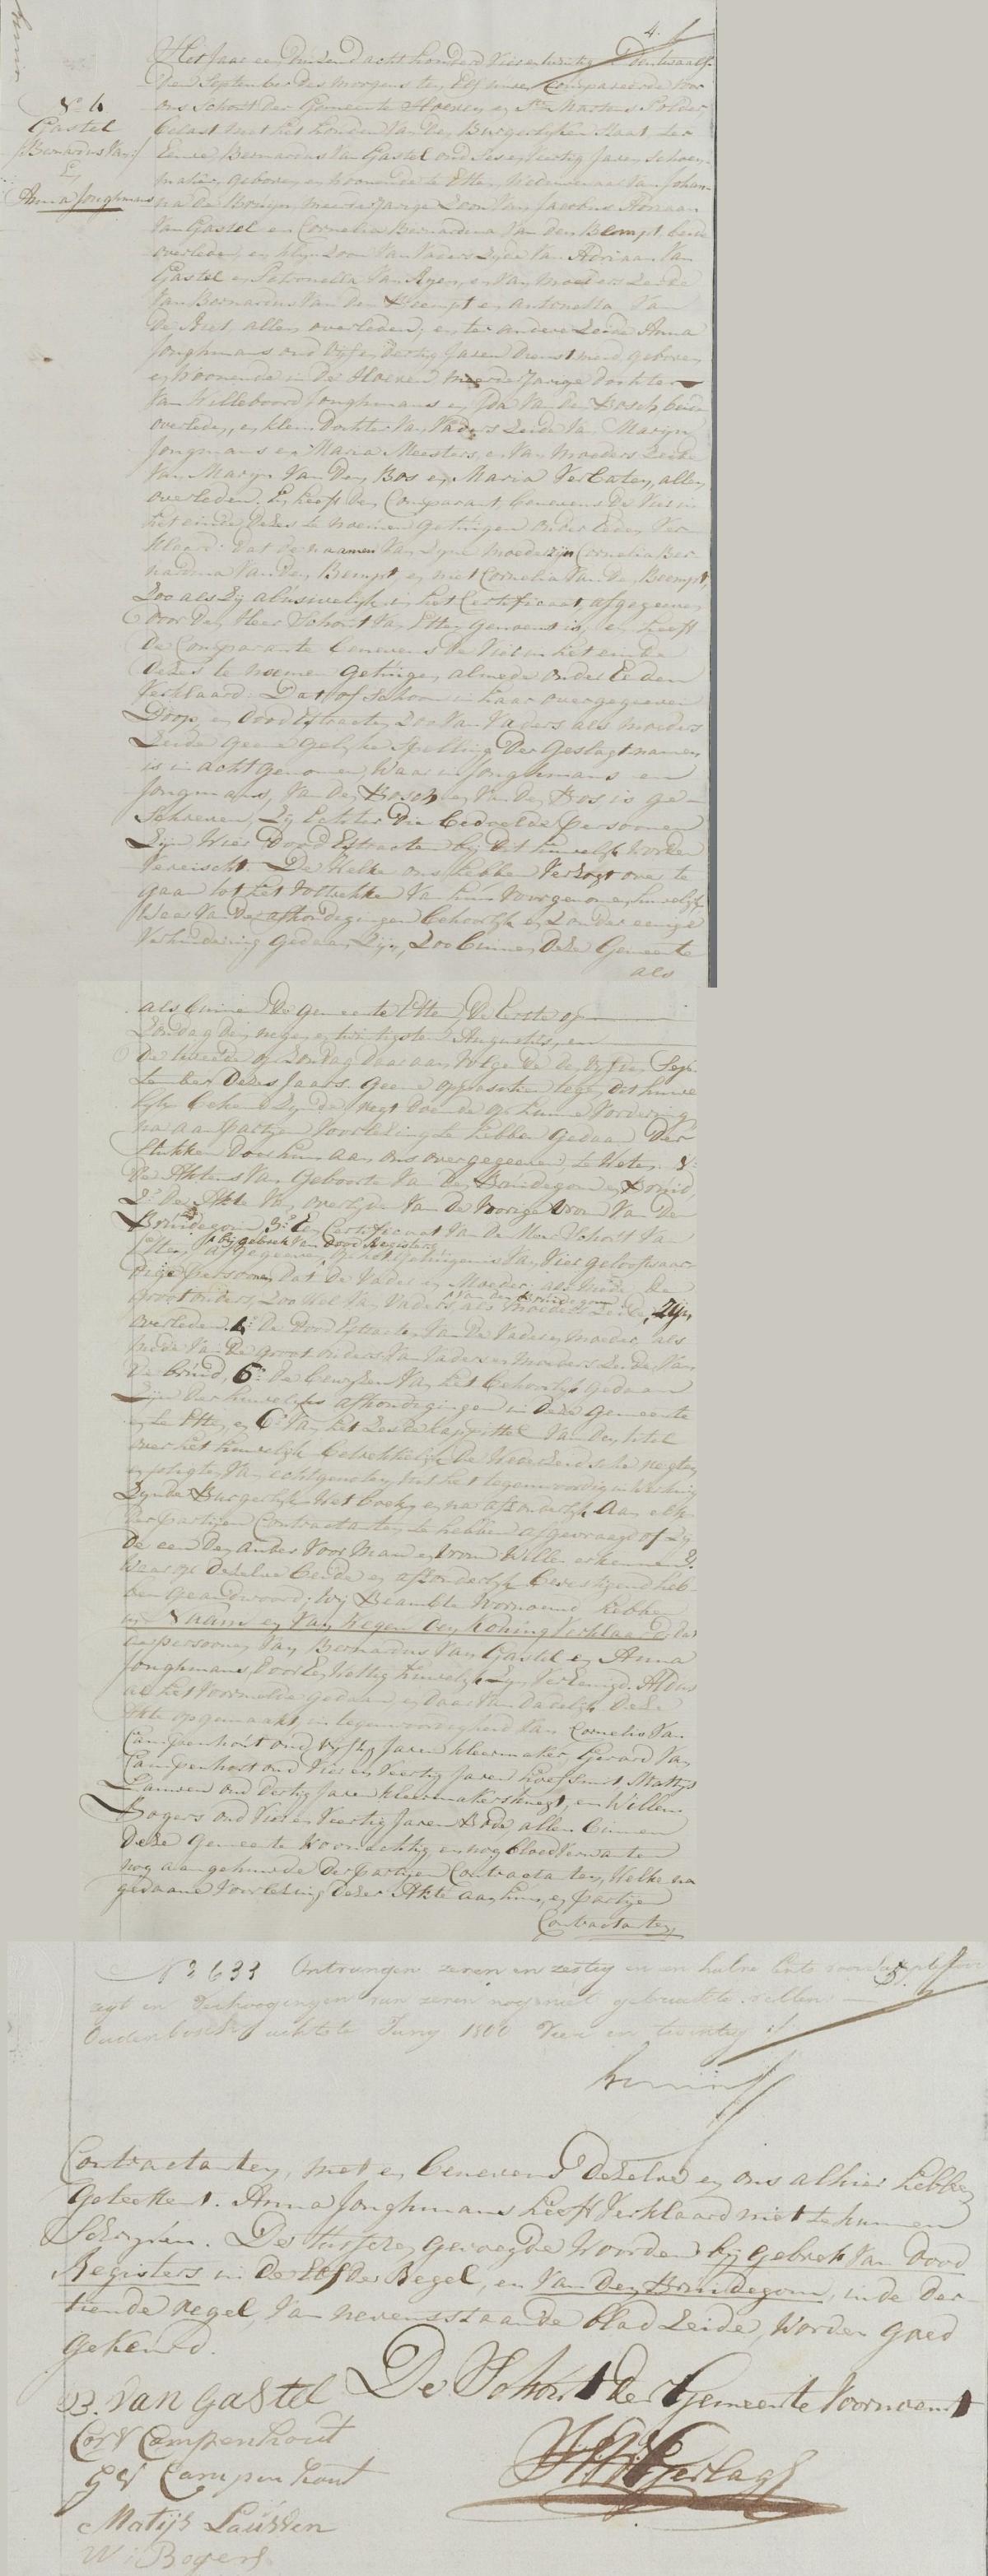 4.
No 6
Gastel
Bernardus Van
&
Anna Jonghmans
Het Jaar een Duizend acht honderd Vier en twintig Den twaalf-
den September des morgens ten Elf uure Compareerde voor
ons Schout der Gemeente Hoeven en St Martens Polder,
belast met het houden van den Burgerlyken Staat, ter
Eenre Bernardus Van Gastel oud Ses en Veertig Jaren Schoen-
maker, geboren en Woonende te Etten, Weduwenaar van Johan-
na De Bruyn, meerderjarige Zoon van Jacobus Adriaan
Van Gastel en Cornelia Bernardina Van den Bempt, beide
overleden, en klyn Zoon Van Vaders Zyde van Adriaan Van
Gastel en Petronella Van Ryen, en Van moeders Zeide
Van Bernardus Van den Beempt en Antonetta Van
De Riet, allen overleden; en ter andere Zeide Anna
Jonghmans oud Vyf en Dertig Jaren Dienstmeid, geboren
en Woonende in De Hoeven meerderjarige Dochter
Van Willeboord Jonghmans en Ida Van Den Bosch beide
overleden, en klein Dochter Van Vaders Zeide Van Maryn
Jongmans en Maria Meesters, en Van Moeders Zeide
Van Maryn Van Den Bos en Maria Verlaten, allen
overleden. En heeft Den Comparant benevens De Vier in
het einde dezes te noemen getuigen onder Eeden Ver-
klaard: Dat de naamen Van Zyne moeder zijn Cornelia Ber-
nardina Van Den Bempt, en niet Cornelia Van De Beempt,
Zoo als Zy abusivelyk in het Certificaat, afgegeven
Door Den Heer Schout Van Etten genoemt is, en heeft
De Comparante benevens De Vier in het einde
Dezes te noemen getuigen almede onder Eeden
Verklaard: Dat of schoon in haar overgegeven
Doop, en Dood Extracten Zoo Van Vaders als moeders
Zeide geene gelyke Spelling Der Geslagt namen
is in acht genomen, Waar in Jonghmans en
Jongmans, Van Den Bosch en Van Den Bos is ge-
Schreven, Zy Echter Die bedoelde persoonen
Zijn Wier Dood Extracten by Dit huwelyk Worden
Vereischt. De Welke ons hebben Verzogt over te
gaan tot het Voltrekken Van hun Voorgenomen huwelyk
Waar Van De afkondegingen behoorlyk en Zonder eenige
Verhindering gedaan Zyn, Zoo binnen Deze Gemeente
als
als binnen De gemeente Etten, De Eerste op
Zondag Den negen en twintigsten Augustus, en
De tweede op Zondag Daar aan Volgende den Vyfden Sep-
tember Dezes Jaars. Geene oppositien tegen dit huwe-
lyk bekend Zynde, regt Doende op hunne Vordering
na aan partyen Voorlezing te hebben gedaan Der
Stukken Door hun aan ons overgegeven, te Weten. 1o
De Aktens Van Geboorte Van Den Bruidegom en Bruid,
2o De Akte Van overlyden Van de Vorige Vrou Van De
Bruidegom, 3o Een Certificaat Van De Heer Schout Van
Etten, bij gebrek Van Dood Registers
afgegeven, op het getuigenis Van Vier geloofwaar-
dige persoonen Dat De Vader en Moeder, als mede De
Van Den Bruidegom
grootouders, Zoo Wel Van Vaders, als Moeders Zeide, Zijn
overleden. 4o De Dood Extracten Van De Vader en moeder, als
mede Van De grootouders Van Vaders en moeders Zeide Van
De bruid, 5o De bewyzen Van het behoorlyk gedaan
Zijn Der huwelyks afkondegingen in Deze gemeente
en te Etten, en 6o Van het Zesde kappittel Van Den titel
over het huwelyk betrekkelyk De Wederzeidsche regten
en pligten Van echtgenoten, uit het tegenwoordig in Werking
Zynde Burgerlyk Wetboek, en na afzonderlyk Aan elk
der partyen Contractanten te hebben afgevraagd of Zy
De een Den Ander Voor Man en Vrouw Willen erkennen?
Waar op Dezelve beide en afzonderlyk bevestigend heb-
ben geandwoord; Wy Beambte Vornoemd hebben
in Naam en Van Wegen Den Koning Verklaard, dat
de persoonen Van Bernardus Van Gastel en Anna
Jonghmans, Door Een Wettig huwelyk Zyn Vereenigd. Aldus
al het Voormelde gedaan, en Daar Van Dadelyk Deze
Akte opgemaakt, in tegenwoordigheid Van Cornelis Van
Campenhout oud Vyftig Jaren kleermaker, Gerard Van
Campenhout oud Vier en Veertig Jaren Hoefsmit, Mattys
Laussen oud Dertig Jaren kleermakersknegt, en Willem
Bogers oud Vier en Veertig Jaren Bode, allen binnen
Deze Gemeente Woonachtig en nog bloedverwanten
nog aangehuwde Der partyen Contractanten, Welke na
gedaane Voorlezing Dezer Akte aan hun, en partyen
Contractanten,
No 633 Ontvangen zeven en zestig en en halve Cents voor
5.
zegt en Verhoogingen van zeven nog niet gebruikte vellen
Oudenbosch achtste Juny 1800 Vier en twintig
Contractanten, met en benevens Dezelve en ons alhier hebben
Geteekent. Anna Jonghmans heeft Verklaard niet te kunnen
Schryven. De tusschen gevoegde Woorden bij gebrek Van Dood
Registers in De Elfde Regel, en Van Den Bruidegom, in de Der-
tiende regel, Van nevensstaande blad Zeide, Worden goed
gekeurd.
De Schout der Gemeente Voornoemt
B. Van Gastel
Cor V Campenhout
G V Campenhout
Matijs Laussen
W: Bogers